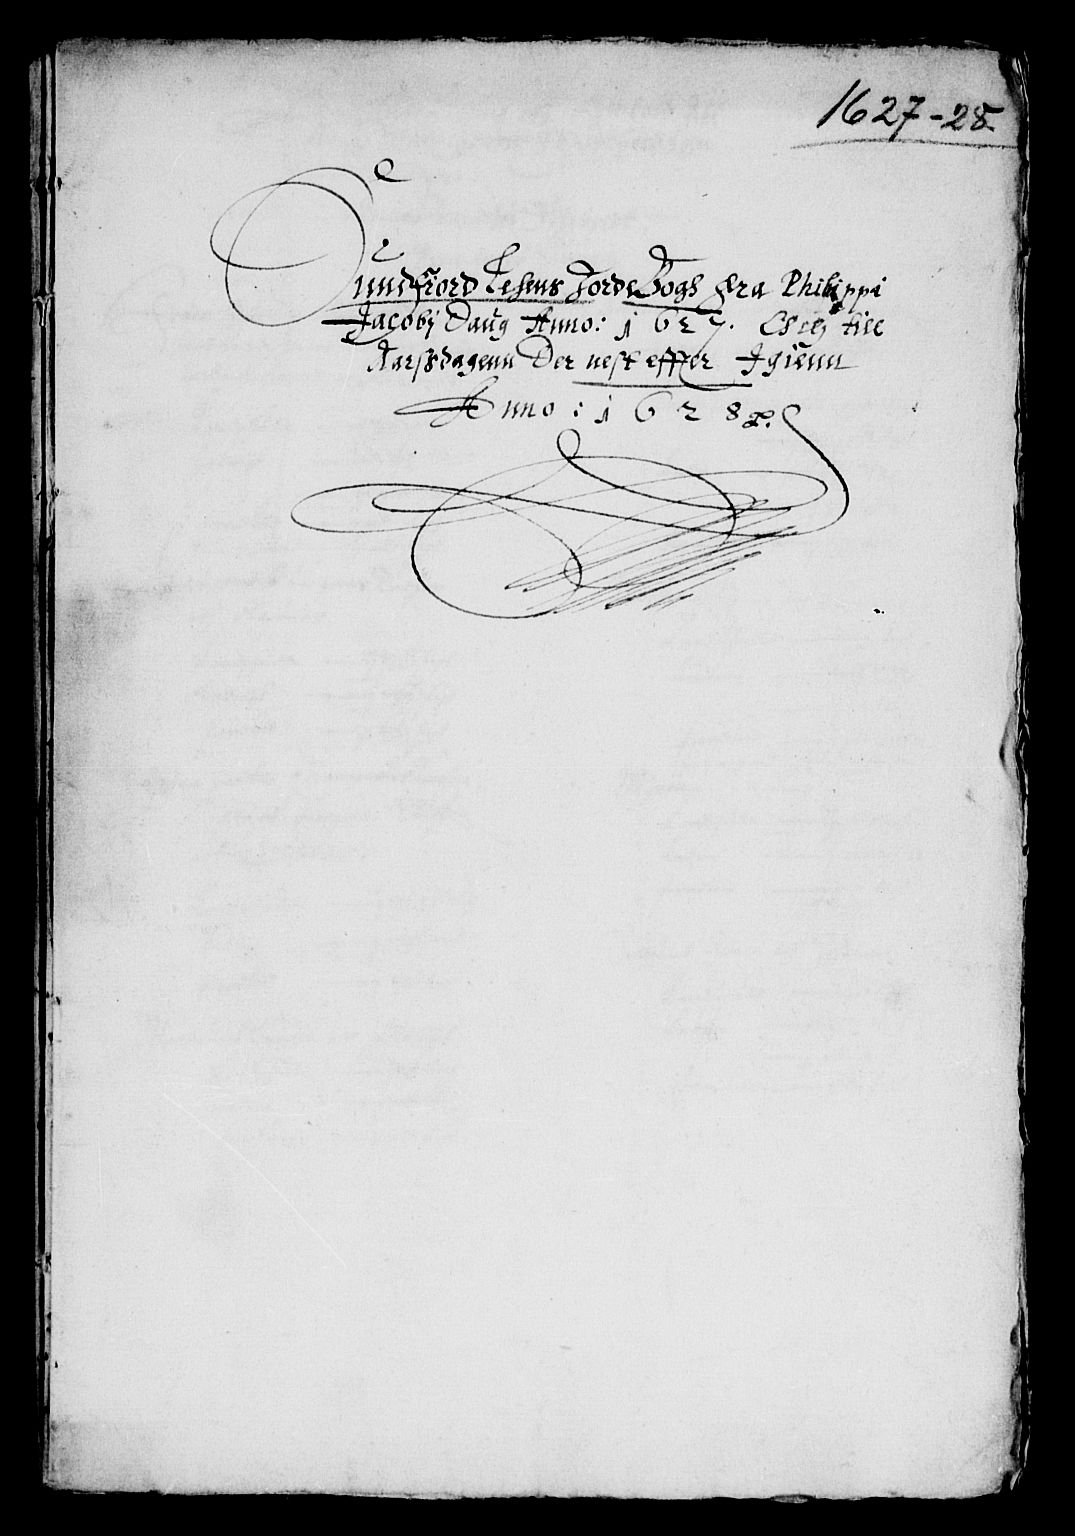 1627-28.
Sundfiord Lehens JordeBogh Fra Philippi
Jacobj Daug Anno: 1627. Och till
Aarssdagenn Der nest effter Igienn
Anno: 1628